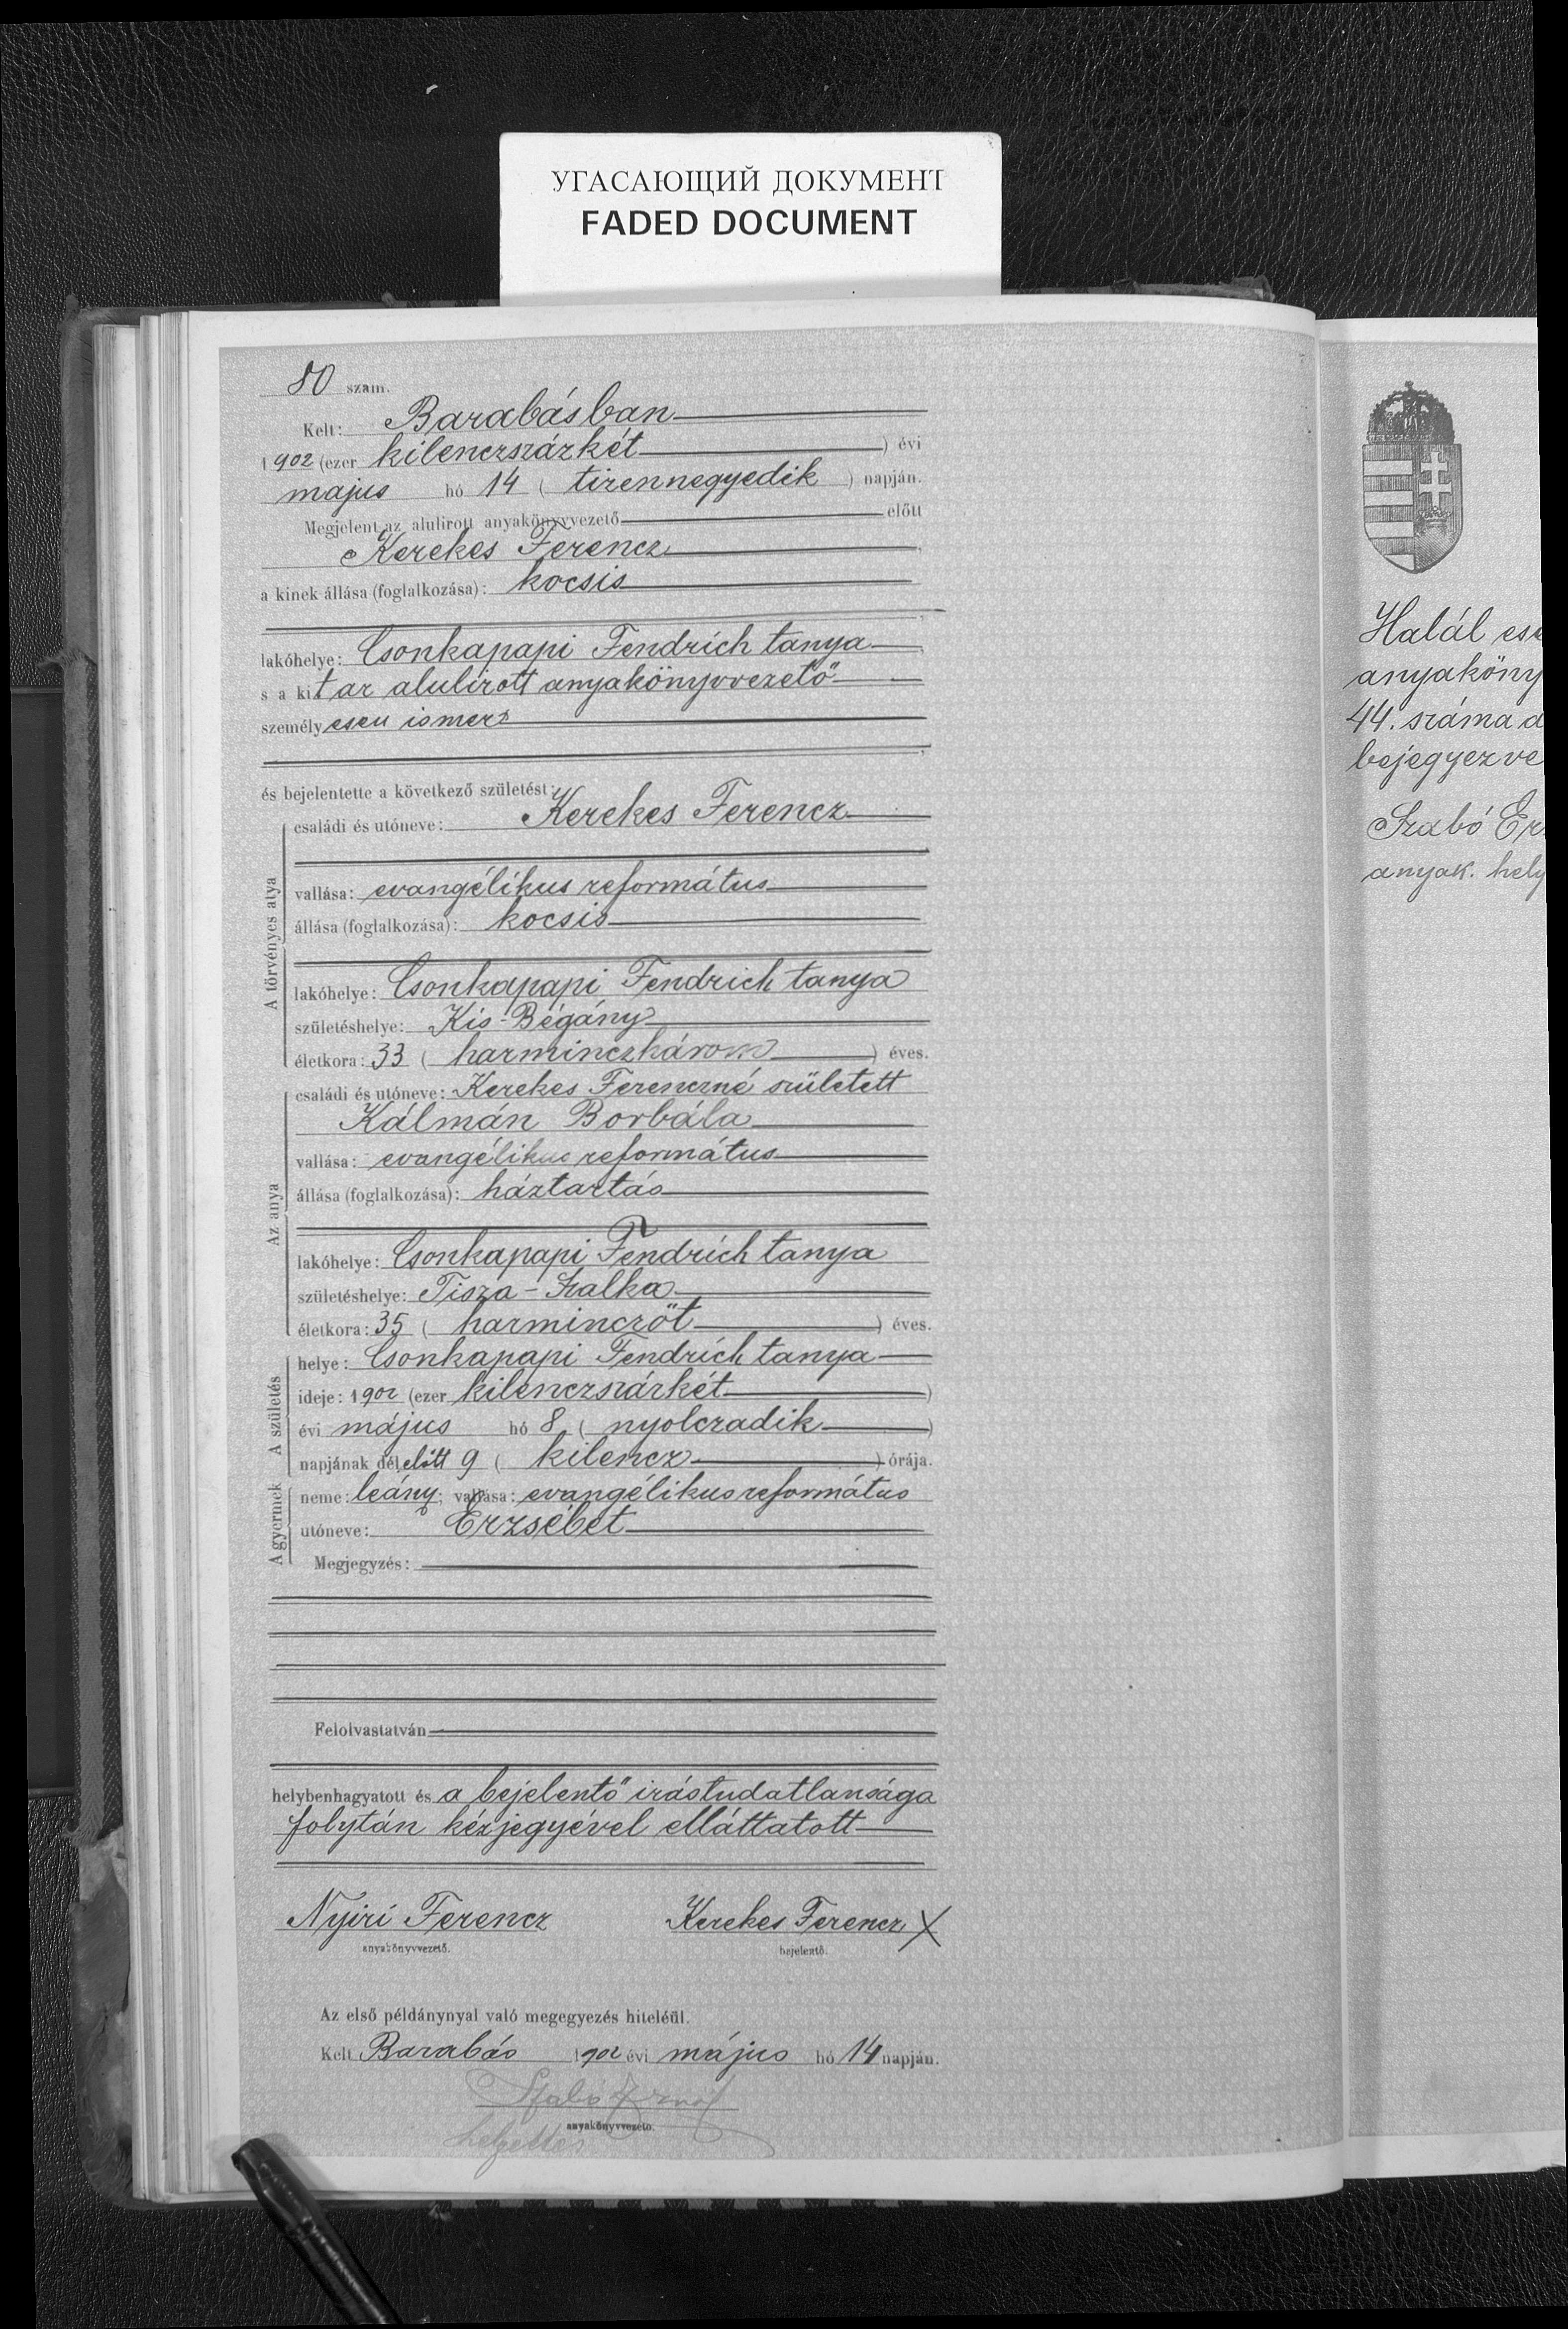 УГАСАЮЩИЙ ДОКУМЕНТ
FADED DOCUMENT
80 szám.
Kelt: Barabásban
1902 (ezer kilenczszázkét) évi
majus hó 14 (tizennegyedik) napján.
Megjelent az alulirott anyakönyvvezető előtt
Kerekes Ferencz
a kinek állása (foglalkozása): kocsis
lakóhelye: Csonkapapi Fendrich tanya
s a kit az alulírott anyakönyvvezető
személyesen ismer
és bejelentette a következő születést:
A törvényes atya
családi és utóneve: Kerekes Ferencz
vallása: evangélikus református
állása (foglalkozása): kocsis
lakóhelye: Csonkapapi Fendrich tanya
születéshelye: Kis-Bégány
életkora: 33 (harminczhárom) éves.
Az anya
családi és utóneve: Kerekes Ferenczné született
Kálmán Borbála
vallása: evangélikus református
állása (foglalkozása): háztartás
lakóhelye: Csonkapapi Fendrich tanya
születéshelye: Tisza-Szalka
életkora: 35 (harminczöt) éves.
A születés
helye: Csonkapapi Fendrich tanya
ideje: 1902 (ezer kilenczszázkét)
évi május hó 8 (nyolczadik)
napjának délelőtt 9 (kilencz) órája.
A gyermek
neme: leány; vallása: evangélikus református
utóneve: Erzsébet
Megjegyzés:
Felolvastatván
helybenhagyatott és a bejelentő irástudatlansága
folytán kézjegyével elláttatott
Nyiri Ferencz Kerekes Ferencz X
anyakönyvvezető. bejelentő.
Az első példánynyal való megegyezés hiteléül.
Kelt Barabás 1902 évi május hó 14 napján.
Szabó Ernő
anyakönyvvezető.
helyettes
Halál es
anyaköny
44. száma a
bejegyezve
Szabó Er
anyak. hely